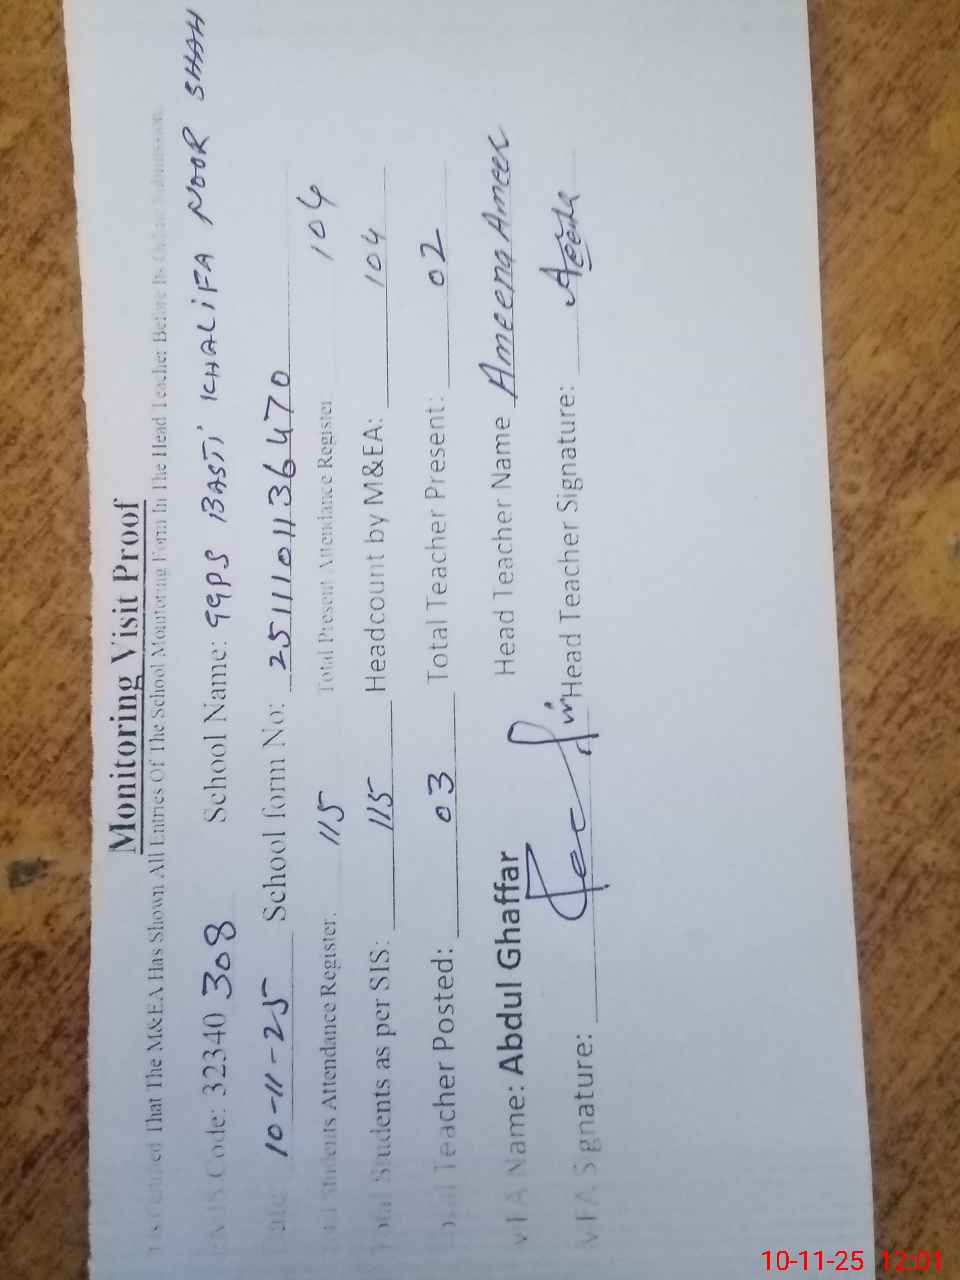 Monitoring Visit Proof
That The M&EA Has Shown All Entries Of The School Monitoring Form In The Head Teacher Before Its
Code: 32340 308 School Name: GGPS BASTI KHALIFA NOOR SHAH
Date: 10-11-25 School form No: 2511101136470
Students Attendance Register: 115 Total Present Attendance Register 104
Total Students as per SIS: 115 Headcount by M&EA: 104
Total Teacher Posted: 03 Total Teacher Present: 02
Name: Abdul Ghaffar Head Teacher Name Ameena Ameer
Signature: Head Teacher Signature:
10-11-25 12:01